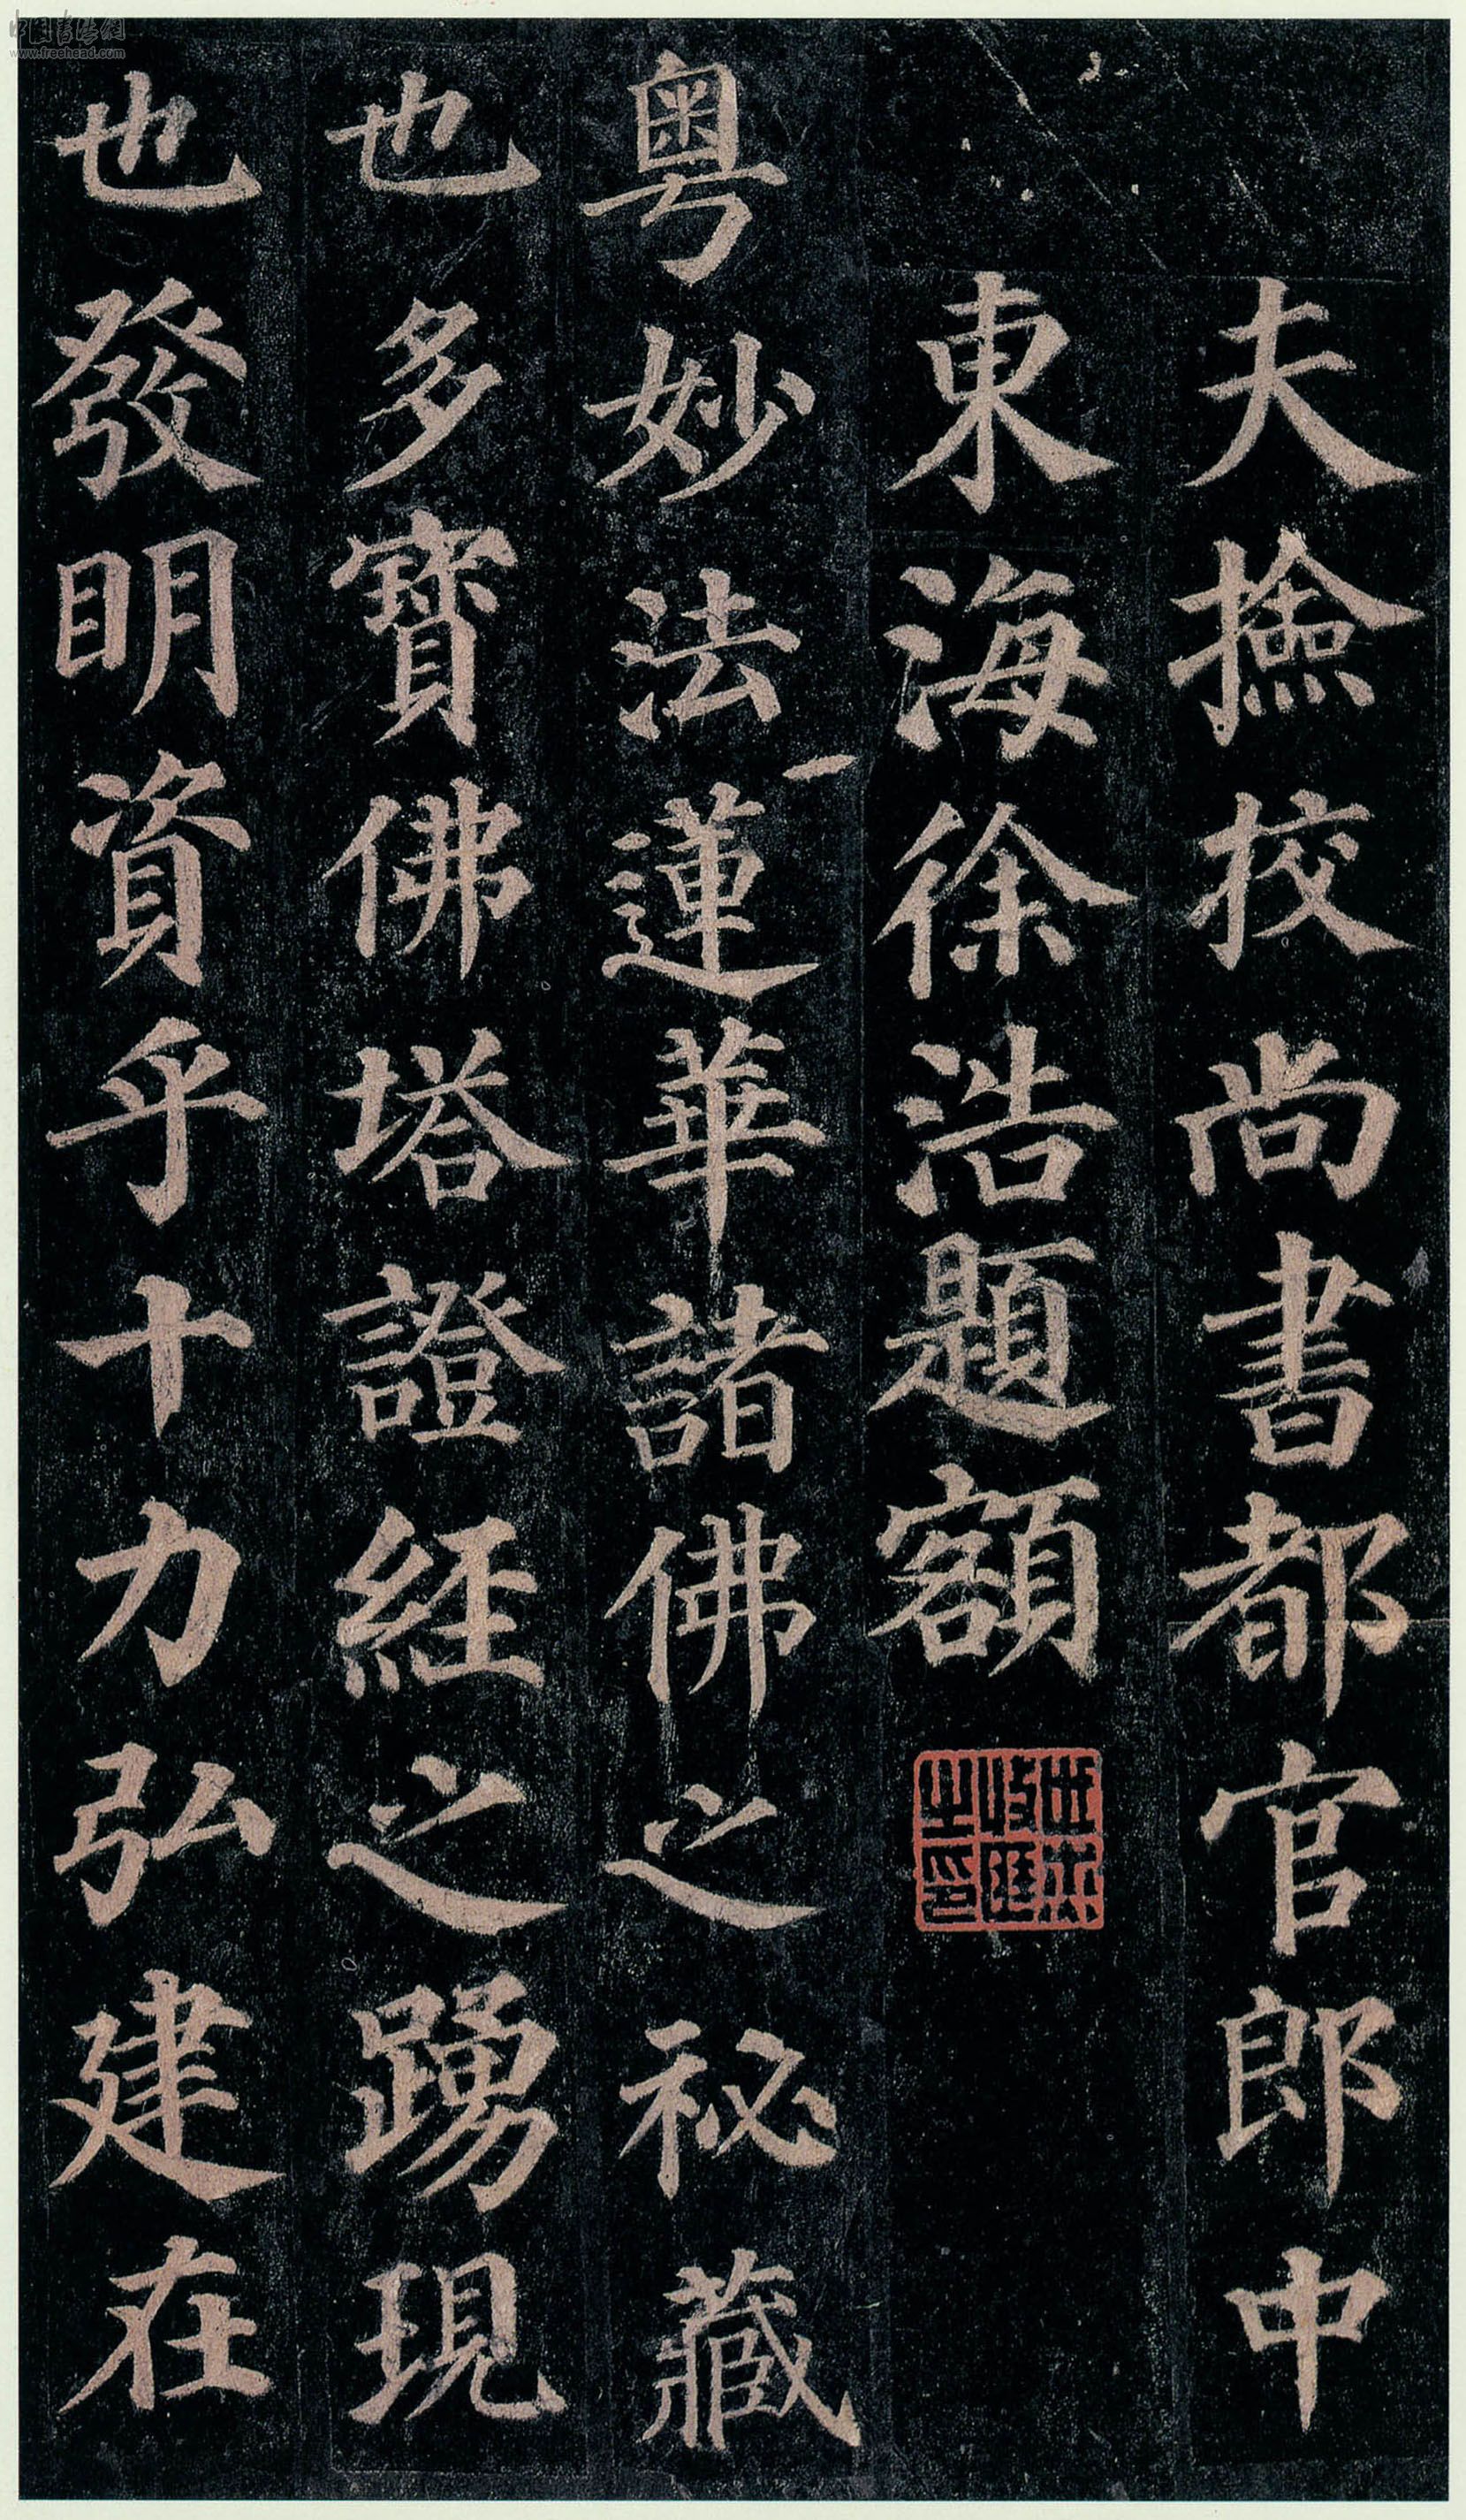 夫撿挍尚書都官郎中
東海徐浩題額
粤妙法蓮華諸佛之秘藏
也多寶佛塔證經之踴現
也發明資乎十力弘建在
中国书法网
www.freehead.com